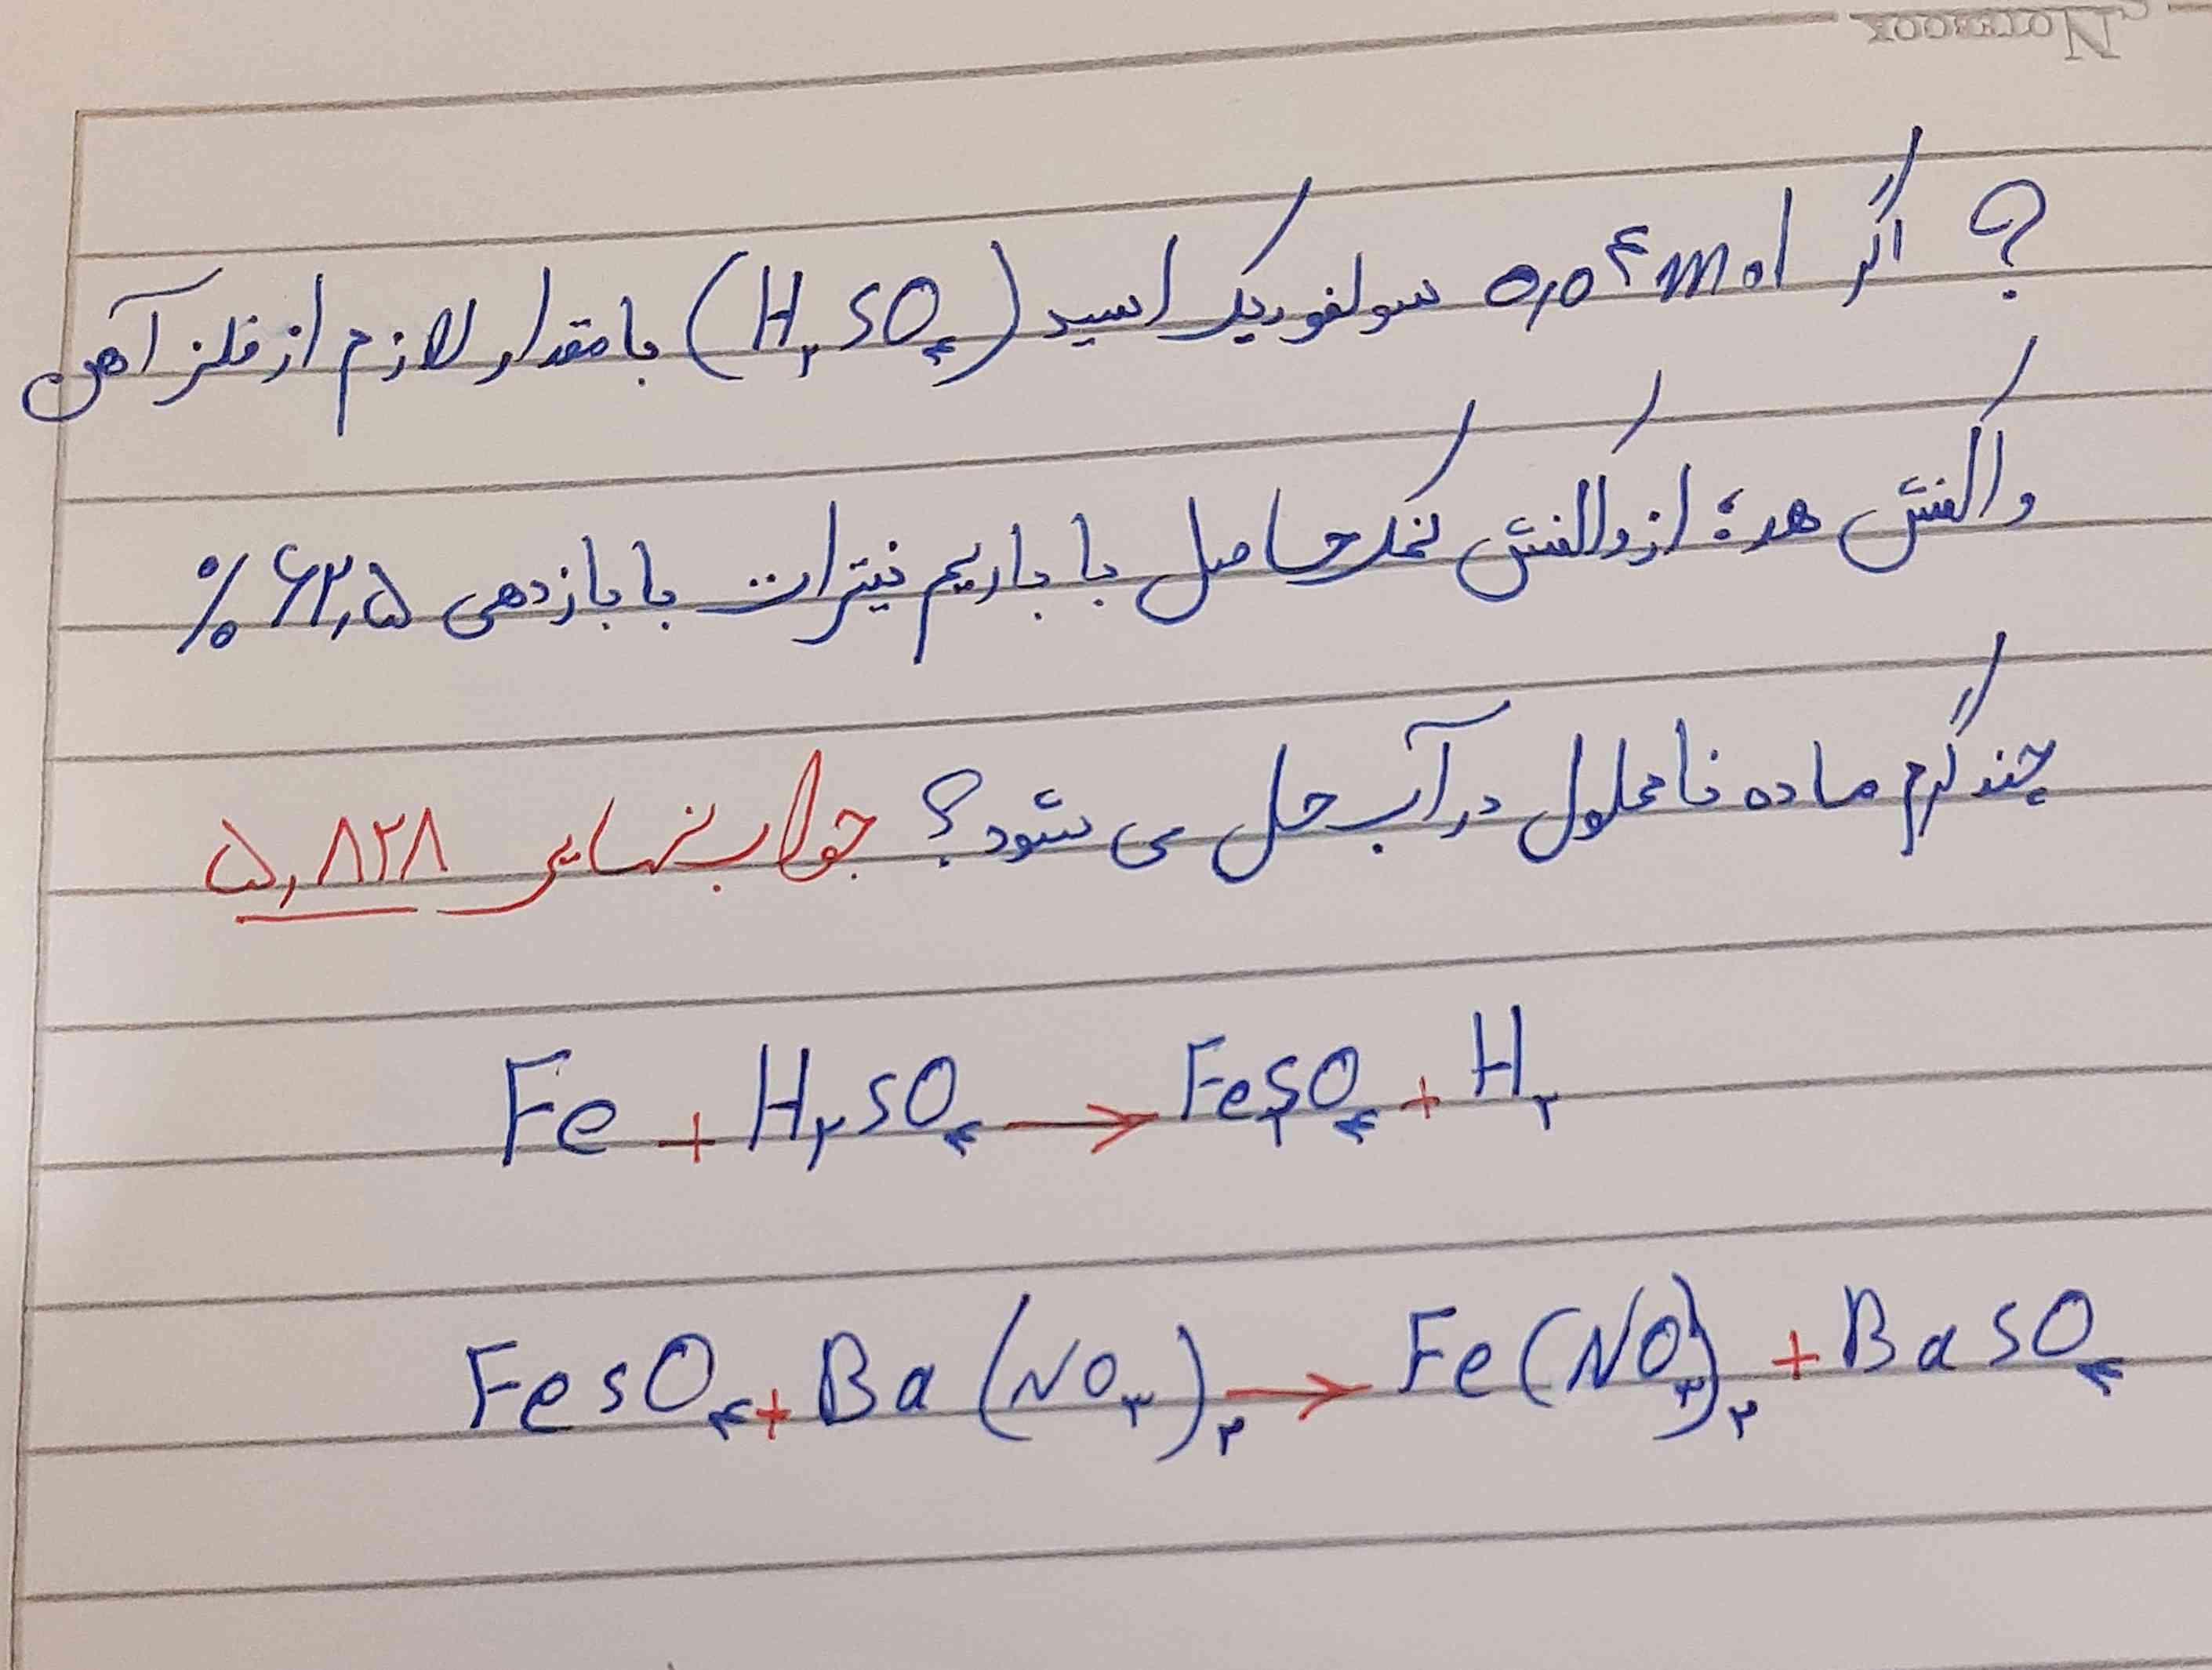 NOTEBOOK
؟ اگر ۰٫۰۴ mol سولفوریک اسید (H۲SO۴) با مقدار لازم از فلز آهن
واکنش هد؛ از واکنش نمک حاصل با باریم نیترات با بازدهی ۶۲٫۵ %
چند گرم ماده نامحلول در آب حل می شود؟ جواب نهایی ۵٫۸۲۸
Fe + H۲SO۴ → FeSO۴ + H۲
FeSO۴ + Ba(NO۳)۲ → Fe(NO۳)۲ + BaSO۴